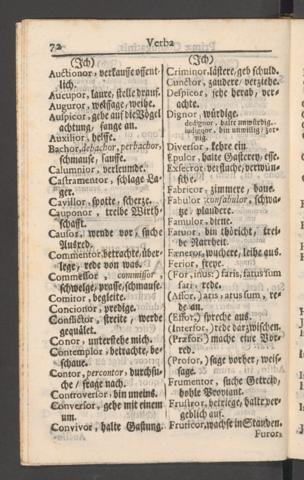 72 Verba
(Ich)
Auctionor, verkauffe offent-
lich.
Aucupor, laure, stelle drauf.
Auguror, weissage, weihe.
Auspicor, gebe auf die Vögel
achtung, fange an.
Auxilior, helffe.
Bachor, debachor, perbachor,
schmause, sauffe.
Calumnior, verleumde.
Castramentor, schlage La-
ger.
Cavillor, spotte, scherze.
Cauponor, treibe Wirth-
schafft.
Causor, wende vor, suche
Ausred.
Commentor, betrachte, über-
lege, rede von was.
Commessor, commissor,
schwelge, prasse, schmause.
Comitor, begleite.
Concionor, predige.
Conflictor, streite, werde
gequälet.
Conor, unterstehe mich.
Contemplor, betrachte, be-
schaue.
Contor, percontor, durchsu-
che / frage nach.
Controversor, bin uneins.
Conversor, gehe mit einem
um.
Convivor, halte Gastung.
(Ich)
Criminor, lästere, geb schuld.
Cunctor, zaudere, verziehe.
Despicor, sehe herab, ver-
achte.
Dignor, würdige.
dedignor, halte unwürdig.
indignor, bin unwillig, zor-
nig.
Diversor, kehre ein.
Epulor, halte Gasterey, esse.
Exsecror, verfluche, verwün-
sche.
Fabricor, zimmere, baue.
Fabulor, confabulor, schwa-
tze, plaudere.
Famulor, diene.
Fatuor, bin thöricht, trei-
be Narrheit.
Fœneror, wuchere, leihe aus.
Ferior, feyre.
(For, inus:) faris, fatus sum
fari, rede.
(Affor,) aris, atus sum, re-
de an.
(Effor,) spreche aus.
(Interfor,) rede darzwischen.
(Præfor) mache eine Vor-
red.
(Profor,) sage vorher, weis-
sage.
Frumentor, suche Getreid,
hohle Proviant.
Frustror, betriege, halte ver-
geblich auf.
Fruticor, wachse in Stauden.
Furor,